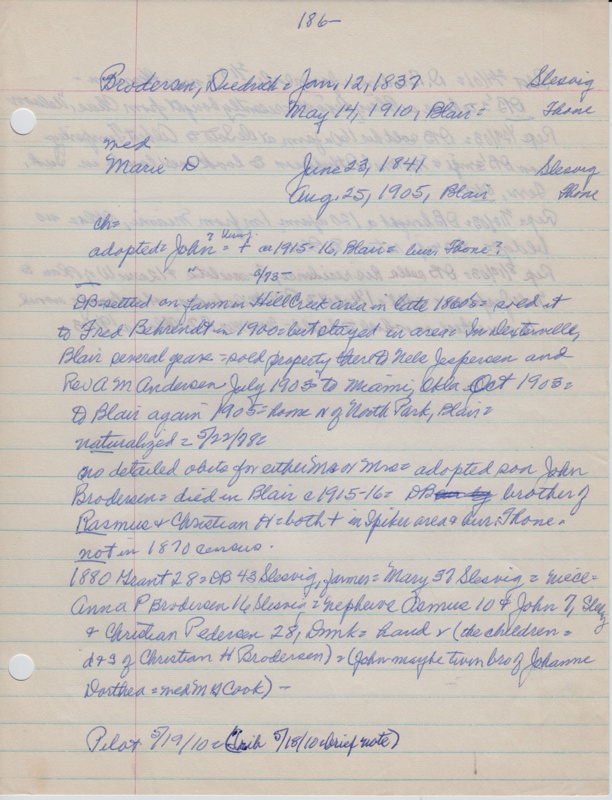 186-
Brodersen, Diedrich = Jan, 12, 1837 Slesvig
May 14, 1910, Blair = Thone
med
Marie D June 23, 1841 Slesvig
Aug, 25, 1905, Blair Thone
ch=
adopted = John = + ca 1915-16, Blair = bur. Thone?
DB = settled on farm in Hill Creek area in late 1860s = sold it
to Fred Behrendt in 1900 = but stayed in area = In Dexterville,
Blair several years = sold property there to Nels Jespersen and
Rev A M Andersen July 1903 = to Miami, Okla. Oct 1903 =
to Blair again 1905 = home N of North Park, Blair =
naturalized = 5/22/78 =
no detailed obits for either Mr or Mrs = adopted son John
Brodersen = died in Blair c 1915-16 = DB brother of
Rasmus & Christian H = both + in Spiker area & bur. Thone =
not in 1870 census.
1880 Grant 28 = DB 43 Slesvig, farmer = Mary 37 Slesvig = niece =
Anna P Brodersen 16, Slesvig = nephews Asmus 10 & John 7, Slesvig
& Christian Pedersen 28, Dmrk = hand (the children =
d & s of Christian H Brodersen) = (John maybe twin bro of Johanne
Dorthea = med M H Cook) -
Pilot 5/19/10 = (Trib 5/18/10 = brief note)